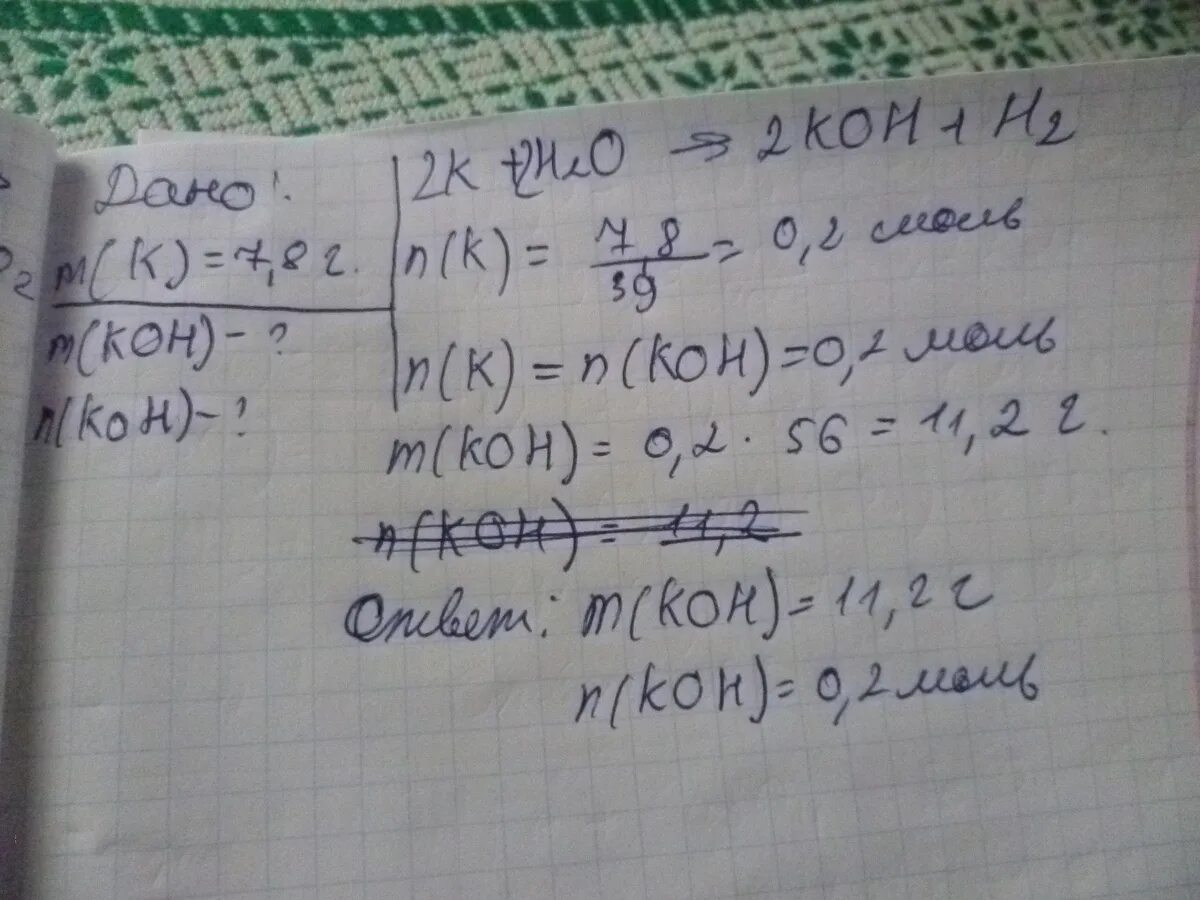 Дано:
m(K) = 7,8 г.
m(KOH) - ?
n(KOH) - ?
2K + 2H₂O → 2KOH + H₂
n(K) = 7,8 / 39 = 0,2 моль
n(K) = n(KOH) = 0,2 моль
m(KOH) = 0,2 · 56 = 11,2 г.
n(KOH) = 11,2
Ответ: m(KOH) = 11,2 г
n(KOH) = 0,2 моль